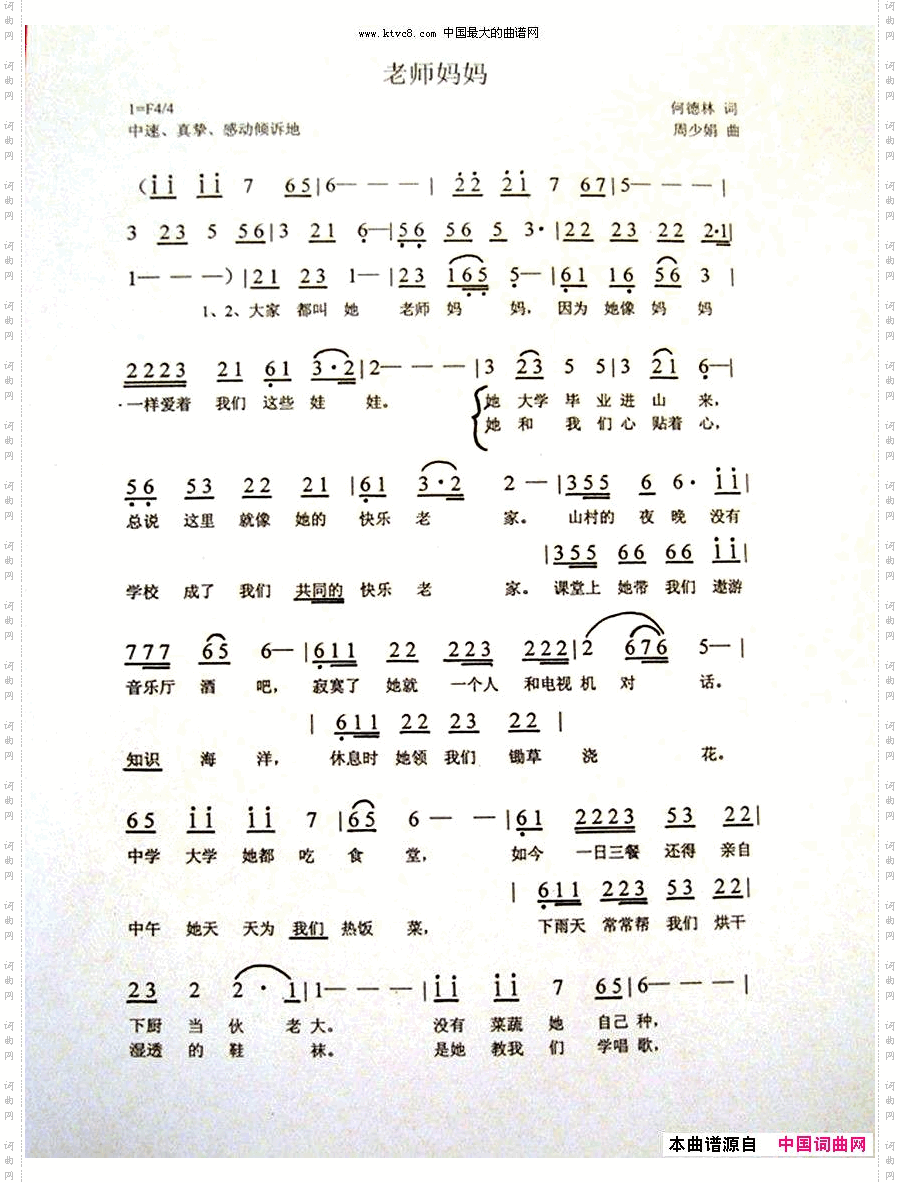 www.ktvc8.com 中国最大的曲谱网
老师妈妈
1=F4/4
何德林 词
中速、真挚、感动倾诉地
周少娟 曲
（i i i i 7 6 5 | 6— — — | 2 2 2 i 7 6 7 | 5— — — |
3 2 3 5 5 6 | 3 2 1 6— | 5 6 5 6 5 3· | 2 2 2 3 2 2 2·1 |
1— — —）| 2 1 2 3 1— | 2 3 1 6 5 5— | 6 1 1 6 5 6 3 |
1、2、大家 都叫 她 老师 妈 妈， 因为 她像 妈 妈
2 2 2 3 2 1 6 1 3·2 | 2— — — | 3 2 3 5 5 | 3 2 1 6— |
·一样爱着 我们 这些 娃 娃。 她 大学 毕 业 进 山 来，
她 和 我 们 心 贴着 心，
5 6 5 3 2 2 2 1 | 6 1 3·2 2 — | 3 5 5 6 6· i i |
总说 这里 就像 她的 快乐 老 家。 山村的 夜 晚 没有
| 3 5 5 6 6 6 6 i i |
学校 成了 我们 共同的 快乐 老 家。 课堂上 她带 我们 遨游
7 7 7 6 5 6— | 6 1 1 2 2 2 2 3 2 2 2 | 2 6 7 6 5— |
音乐厅 酒 吧， 寂寞了 她就 一个人 和电视 机 对 话。
| 6 1 1 2 2 2 3 2 2 |
知识 海 洋， 休息时 她领 我们 锄草 浇 花。
6 5 i i i i 7 | 6 5 6 — — | 6 1 2 2 2 3 5 3 2 2 |
中学 大学 她都 吃 食 堂， 如今 一日三餐 还得 亲自
| 6 1 1 2 2 3 5 3 2 2 |
中午 她天 天为 我们 热饭 菜， 下雨天 常常帮 我们 烘干
2 3 2 2 · 1 | 1— — — | i i i i 7 6 5 | 6— — — |
下厨 当 伙 老 大。 没有 菜蔬 她 自己 种，
湿透 的 鞋 袜。 是她 教我 们 学唱 歌，
本曲谱源自 中国词曲网